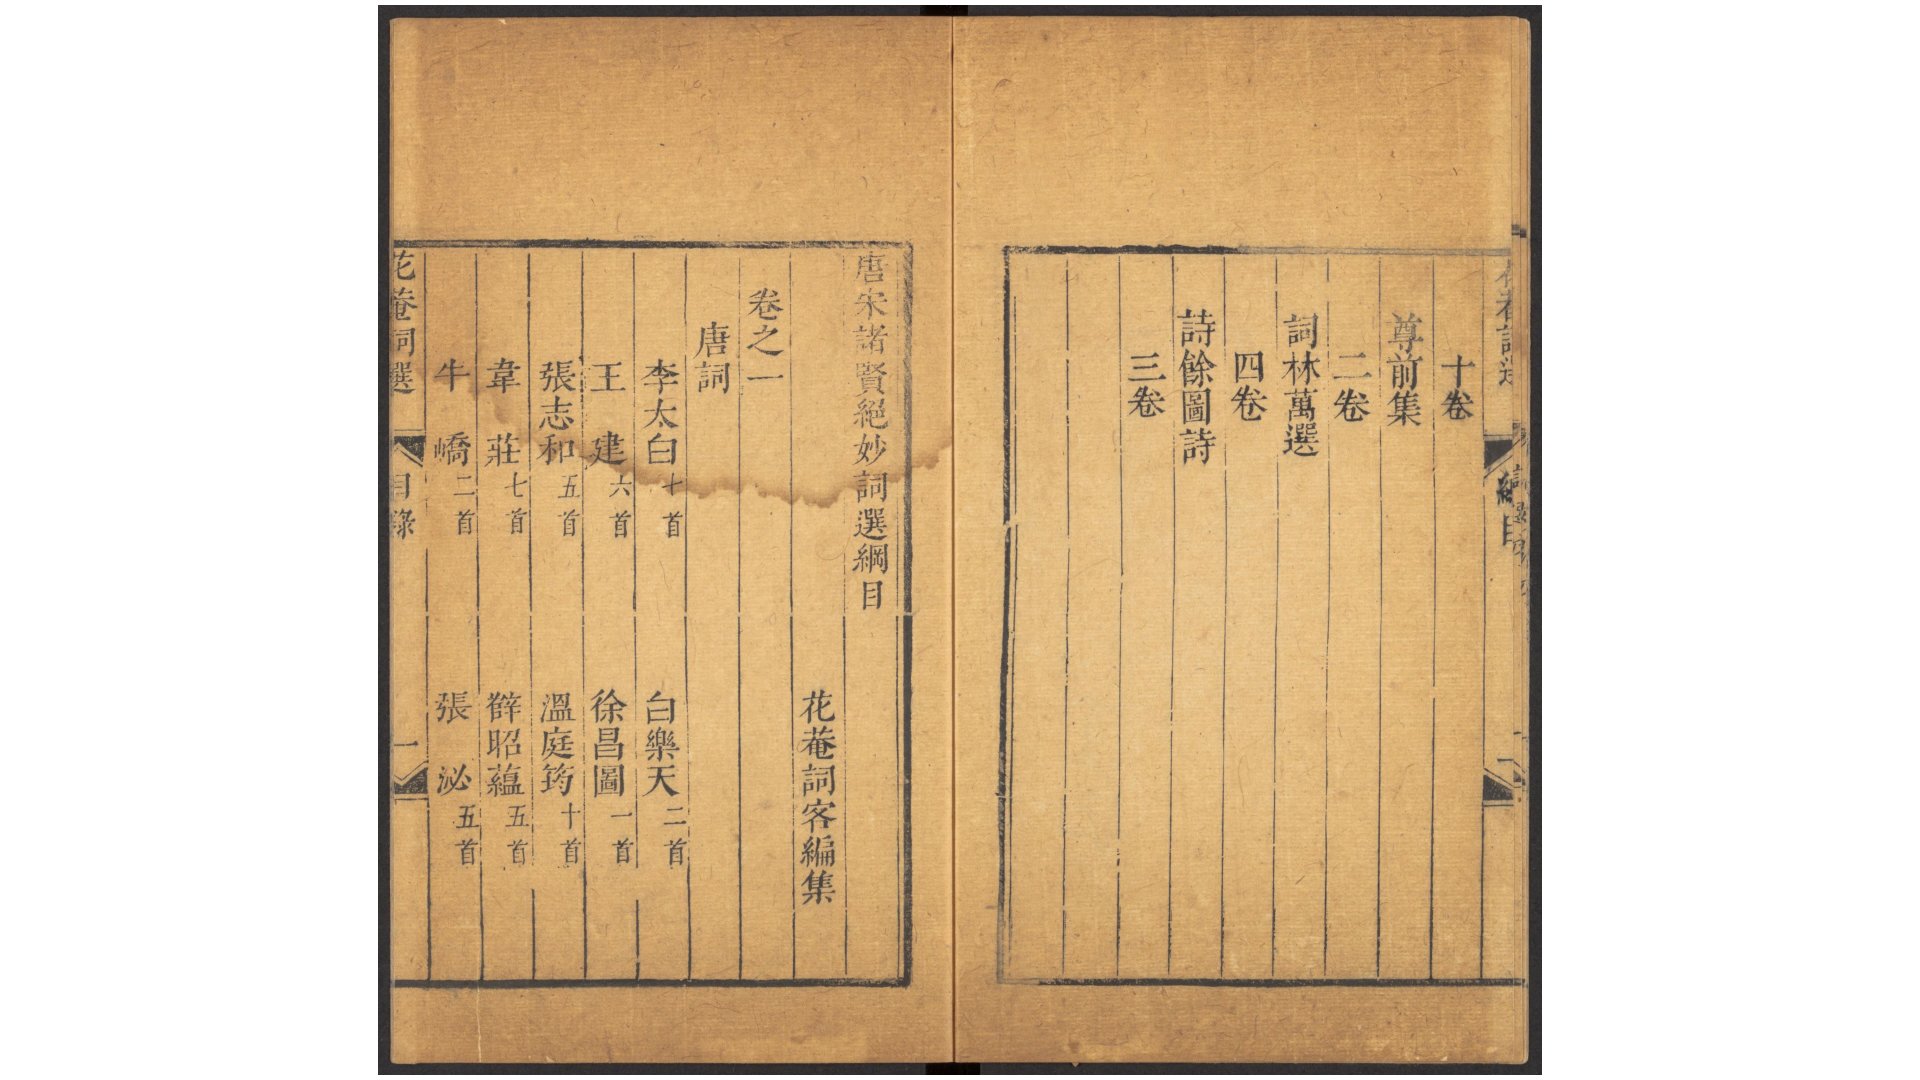 十卷
尊前集
二卷
詞林萬選
四卷
詩餘圖譜
三卷
唐宋諸賢絕妙詞選綱目
花菴詞客編集
卷之一
唐詞
李太白七首 白樂天二首
王建六首 徐昌圖一首
張志和五首 溫庭筠十首
韋莊七首 薛昭蘊五首
牛嶠二首 張泌五首
花菴詞選 目錄 一